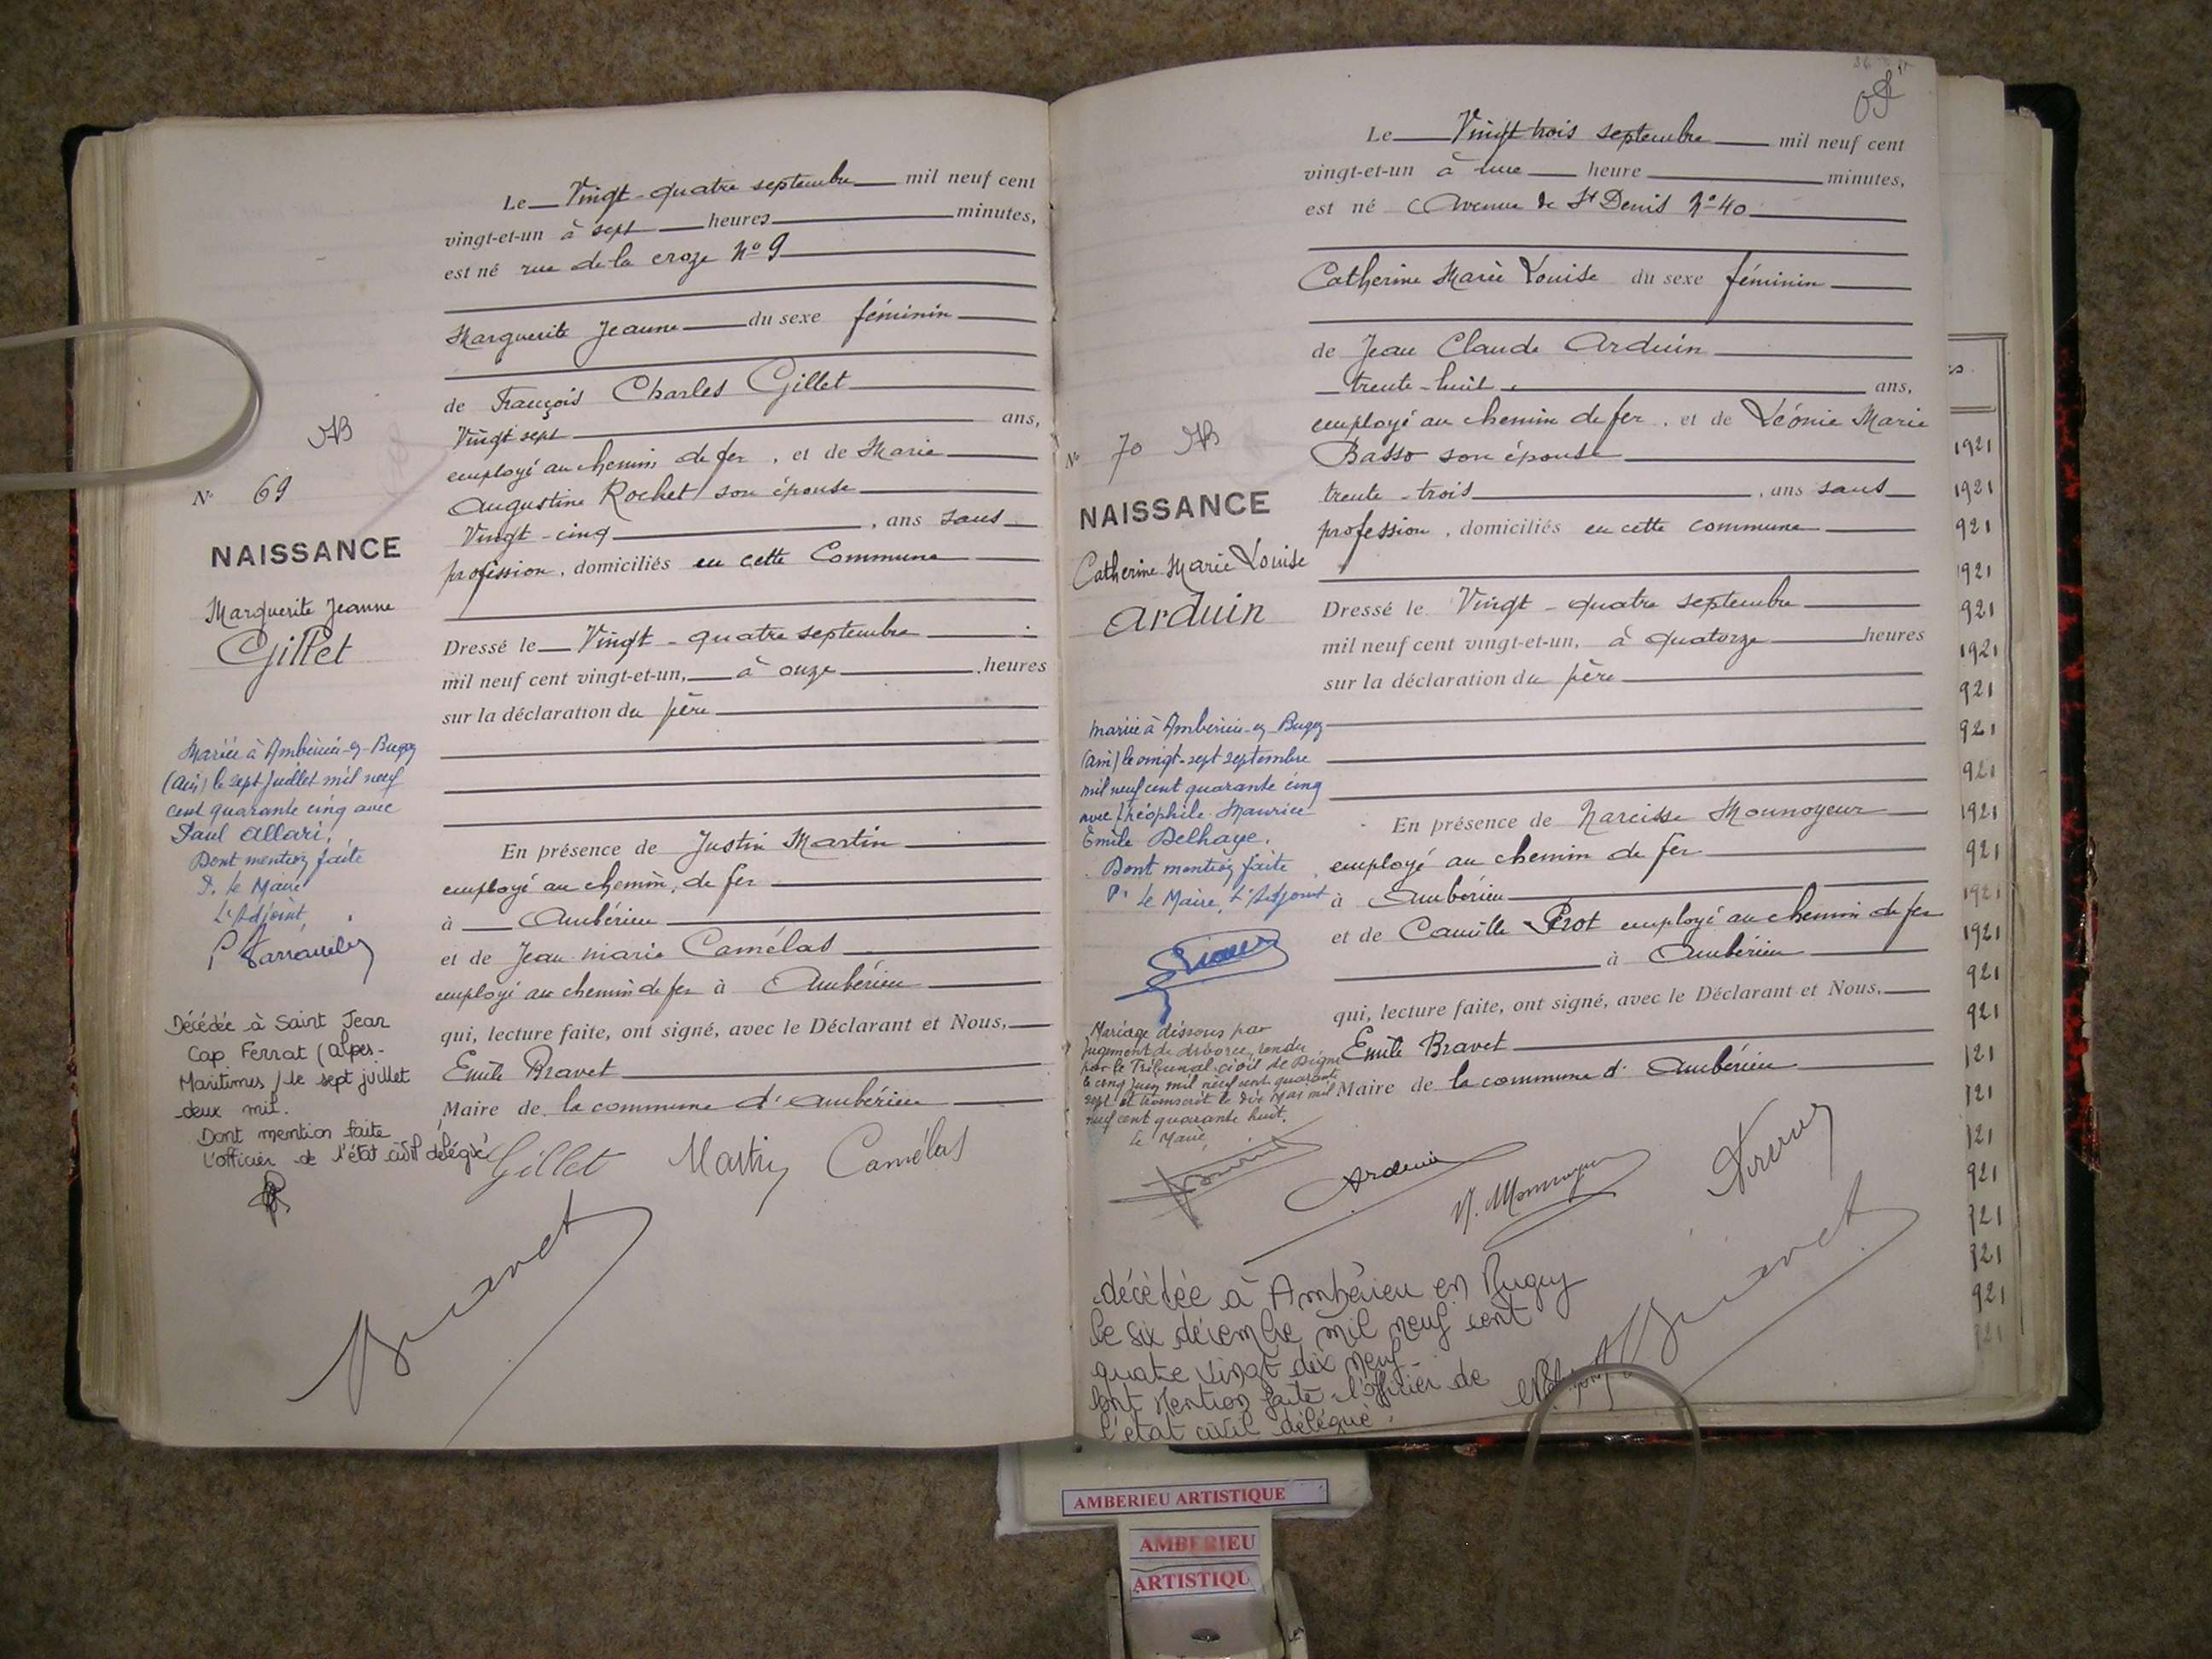 Le Vingt-quatre septembre mil neuf cent
vingt-et-un à sept heures minutes,
est né rue de la croze No 9
Marguerite Jeanne du sexe féminin
de François Charles Gillet
Vingt sept ans,
employé au chemin de fer, et de Marie
Augustine Rochet son épouse
Vingt-cinq, ans sans
profession, domiciliés en cette Commune
Dressé le Vingt-quatre septembre
mil neuf cent vingt-et-un, à onze heures
sur la déclaration du père
En présence de Justin Martin
employé au chemin de fer
à Ambérieu
et de Jean marie Camélas
employé au chemin de fer à Ambérieu
qui, lecture faite, ont signé, avec le Déclarant et Nous,
Emile Bravet
Maire de la commune d'Ambérieu
Gillet Martin Camélas
Bravet
No 69
NAISSANCE
Marguerite Jeanne
Gillet
Mariée à Ambérieu-en-Bugey
(Ain) le sept juillet mil neuf
cent quarante cinq avec
Paul Allari.
Dont mention faite
P. le Maire
L'Adjoint,
Décédée à Saint Jean
Cap Ferrat (Alpes-
Maritimes) le sept juillet
deux mil.
Dont mention faite
L'officier de l'état civil délégué
Le Vingt trois septembre mil neuf cent
vingt-et-un à une heure minutes,
est né Avenue de St Denis No 40
Catherine Marie Louise du sexe féminin
de Jean Claude Arduin
trente-huit ans,
employé au chemin de fer, et de Léonie Marie
Basso son épouse
trente-trois, ans sans
profession, domiciliés en cette commune
Dressé le Vingt-quatre septembre
mil neuf cent vingt-et-un, à quatorze heures
sur la déclaration du père
En présence de Narcisse Monnoyeur
employé au chemin de fer
à Ambérieu
et de Camille employé au chemin de fer
à Ambérieu
qui, lecture faite, ont signé, avec le Déclarant et Nous,
Emile Bravet
Maire de la commune d'Ambérieu
Arduin N. Monnoyeur
Bravet
No 70
NAISSANCE
Catherine Marie Louise
Arduin
mariée à Ambérieu-en-Bugey
(Ain) le vingt-sept septembre
mil neuf cent quarante cinq
avec Théophile Maurice
Emile Delhaye.
Dont mention faite
Pr le Maire, l'Adjoint
Mariage dissous par
jugement de divorce rendu
par le Tribunal civil de Digne
le cinq juin mil neuf cent quarante
sept et transcrit le dix Mai mil
neuf cent quarante huit.
Le Maire,
décédée à Ambérieu en Bugey
le six décembre mil neuf cent
quatre vingt dix neuf
Dont Mention faite l'officier de
l'état civil délégué.
1921
1921
921
1921
921
1921
921
921
921
1921
921
1921
1921
921
921
121
121
121
921
921
921
921
AMBERIEU ARTISTIQUE
AMBERIEU
ARTISTIQU